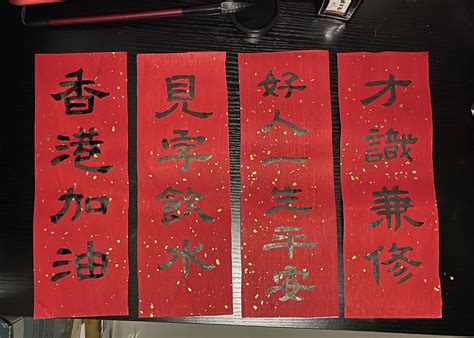 香港加油
見字飲水
好人一生平安
才識兼修